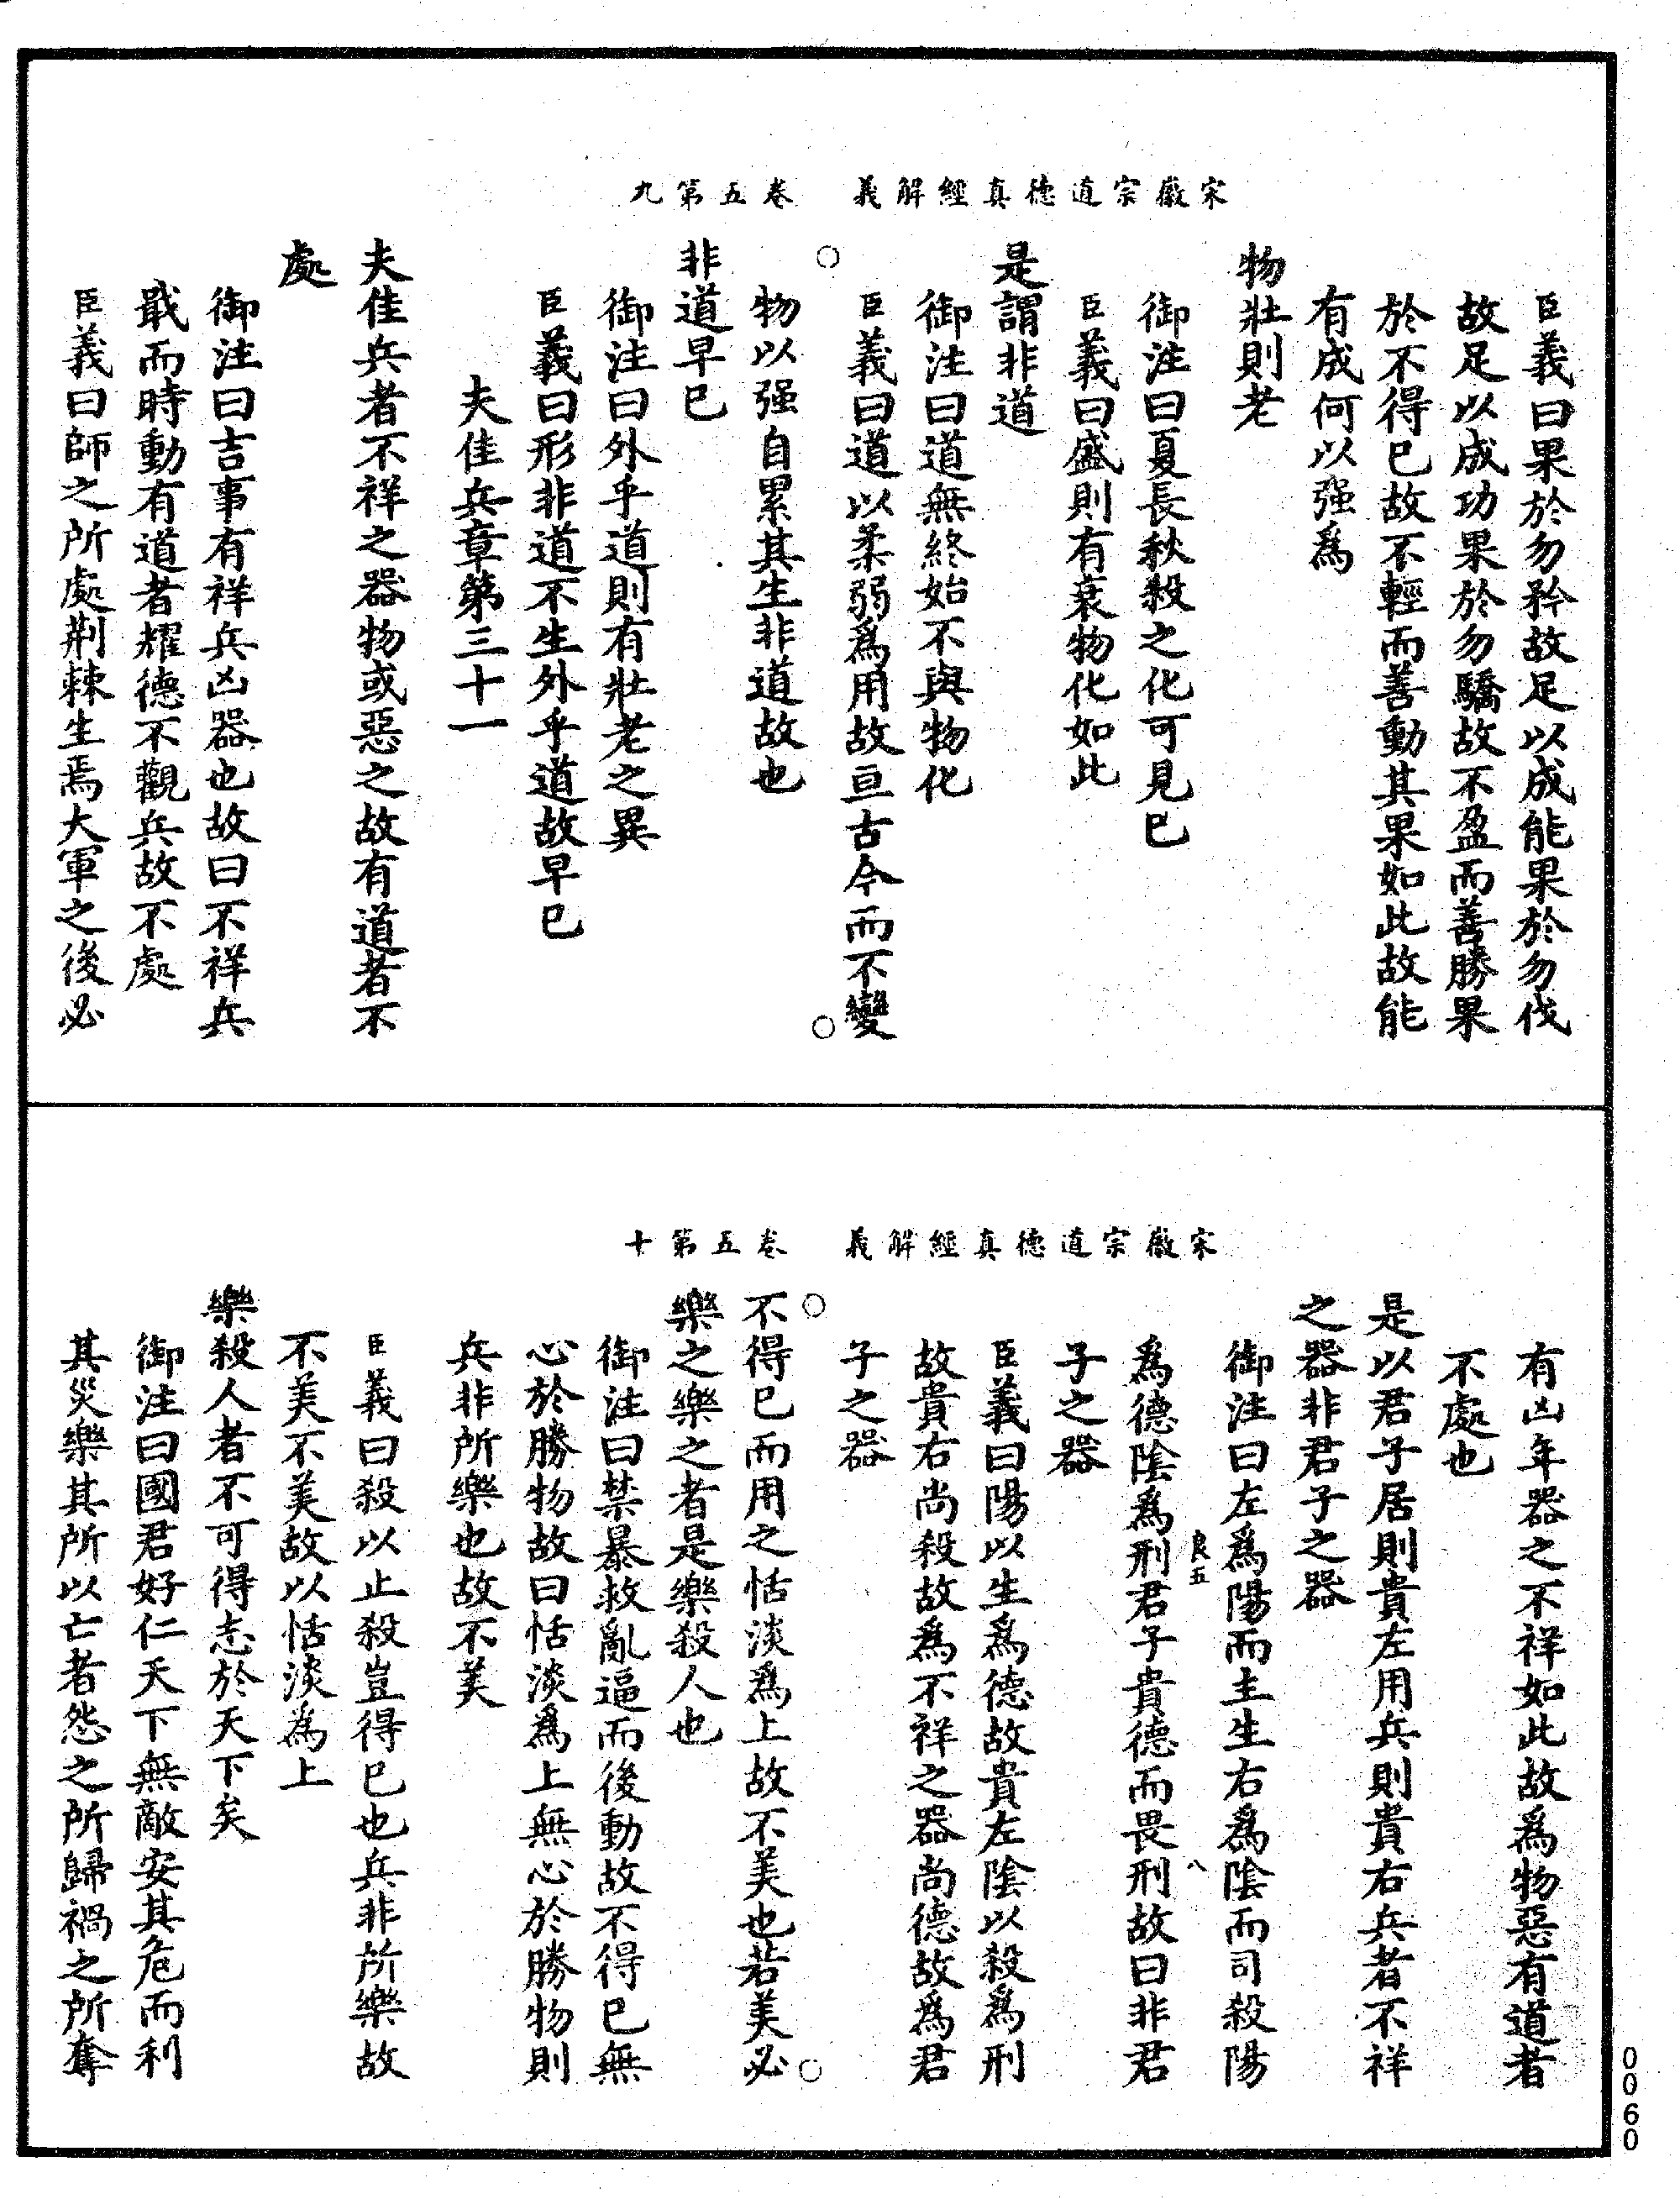 宋徽宗道德真經解義　卷五第九
臣義曰果於勿矜故足以成能果於勿伐
故足以成功果於勿驕故不盈而善勝果
於不得已故不輕而善動其果如此故能
有成何以强爲
物壯則老
御注曰夏長秋殺之化可見已
臣義曰盛則有衰物化如此
是謂非道
御注曰道無終始不與物化
臣義曰道以柔弱爲用故亘古今而不變
物以强自累其生非道故也
非道早已
御注曰外乎道則有壯老之異
臣義曰形非道不生外乎道故早已
夫佳兵章第三十一
夫佳兵者不祥之器物或惡之故有道者不
處
御注曰吉事有祥兵凶器也故曰不祥兵
戢而時動有道者耀德不觀兵故不處
臣義曰師之所處荆棘生焉大軍之後必
宋徽宗道德真經解義　卷五第十
有凶年器之不祥如此故爲物惡有道者
不處也
是以君子居則貴左用兵則貴右兵者不祥
之器非君子之器
御注曰左爲陽而主生右爲陰而司殺陽
良五　八
爲德陰爲刑君子貴德而畏刑故曰非君
子之器
臣義曰陽以生爲德故貴左陰以殺爲刑
故貴右尚殺故爲不祥之器尚德故爲君
子之器
不得已而用之恬淡爲上故不美也若美必
樂之樂之者是樂殺人也
御注曰禁暴救亂逼而後動故不得已無
心於勝物故曰恬淡爲上無心於勝物則
兵非所樂也故不美
臣義曰殺以止殺豈得已也兵非所樂故
不美不美故以恬淡為上
樂殺人者不可得志於天下矣
御注曰國君好仁天下無敵安其危而利
其災樂其所以亡者怨之所歸禍之所奪
0060